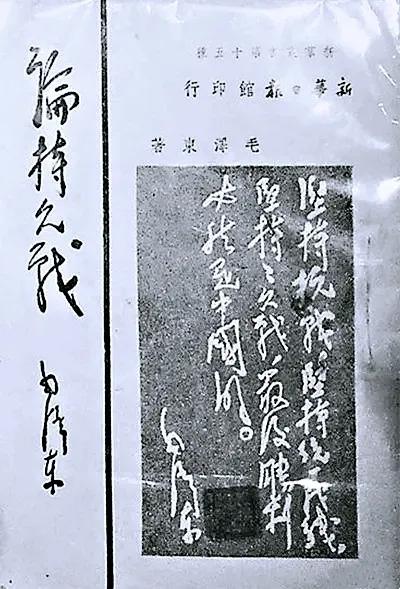 論持久戰
毛澤東
新羣叢書第十五種
新華日報館印行
毛澤東著
堅持抗戰，堅持統一戰線，
堅持々久戰，最後勝利
必然是中國的。
毛澤東